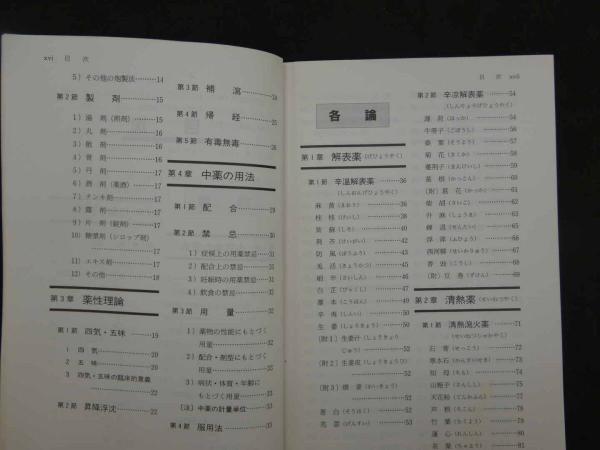 xvi 目 次
5）その他の炮製法………14
第2節 製 剤………15
1）湯 剤（煎剤）………15
2）丸 剤………15
3）散 剤………16
4）膏 剤………16
5）丹 剤………17
6）酒 剤（薬酒）………17
7）チンキ剤………17
8）露 剤………17
9）片 剤（錠剤）………17
10）糖漿剤（シロップ剤）
………17
11）エキス剤………17
12）その他………18
第3章 薬性理論
第1節 四気・五味………19
1 四 気………20
2 五 味………20
3 四気・五味の臨床的意義
………22
第2節 昇降浮沈………22
第3節 補 瀉………24
第4節 帰 経………25
第5節 有毒無毒………26
第4章 中薬の用法
第1節 配 合………29
第2節 禁 忌………30
1）症候上の用薬禁忌…31
2）配合上の禁忌………31
3）妊娠時の用薬禁忌…31
4）飲食の禁忌………31
第3節 用 量………32
1）薬物の性能にもとづく
用量………32
2）配合・剤型にもとづく
用量………32
3）病状・体質・年齢に
もとづく用量………33
〔注〕中薬の計量単位………33
第4節 服用法………33
目 次 xvii
各 論
第1章 解表薬（げひょうやく）
第1節 辛温解表薬………36
（しんおんげひょうやく）
麻 黄（まおう）………36
桂 枝（けいし）
紫 蘇（しそ）………40
荊 芥（けいがい）
防 風（ぼうふう）
羌 活（きょうかつ）
細 辛（さいしん）
白 芷（びゃくし）
藁 本（こうほん）
辛 夷（しんい）………50
生 姜（しょうきょう）………50
〔附1〕生姜汁（しょうきょう
じゅう）………52
〔附2〕生姜皮（しょうきょうひ）
………52
〔附3〕煨 姜（わいきょう）
………52
葱 白（そうはく）………52
芫 荽（げんすい）………53
第2節 辛涼解表薬………54
（しんりょうげひょうやく）
薄 荷（はっか）………54
牛蒡子（ごぼうし）………56
桑 葉（そうよう）………57
菊 花（きくか）………58
蔓荊子（まんけいし）
葛 根（かっこん）
〔附〕葛 花（かっか）
柴 胡（さいこ）
升 麻（しょうま）
蝉 退（せんたい）
浮 萍（ふひょう）
西河柳（せいかりゅう）
香 豉（こうし）………68
〔附〕豆 巻（ずけん）………69
第2章 清熱薬（せいねつやく）
第1節 清熱瀉火薬………71
（せいねつしゃかやく）
石 膏（せっこう）
寒水石（かんすいせき）
知 母（ちも）
山梔子（さんしし）
天花粉（てんかふん）
芦 根（ろこん）
竹 葉（ちくよう）
蓮 心（れんしん）